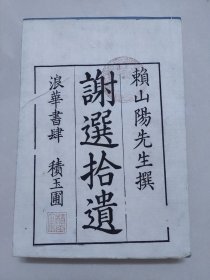 賴山陽先生撰
謝選拾遺
浪華書肆 積玉圃